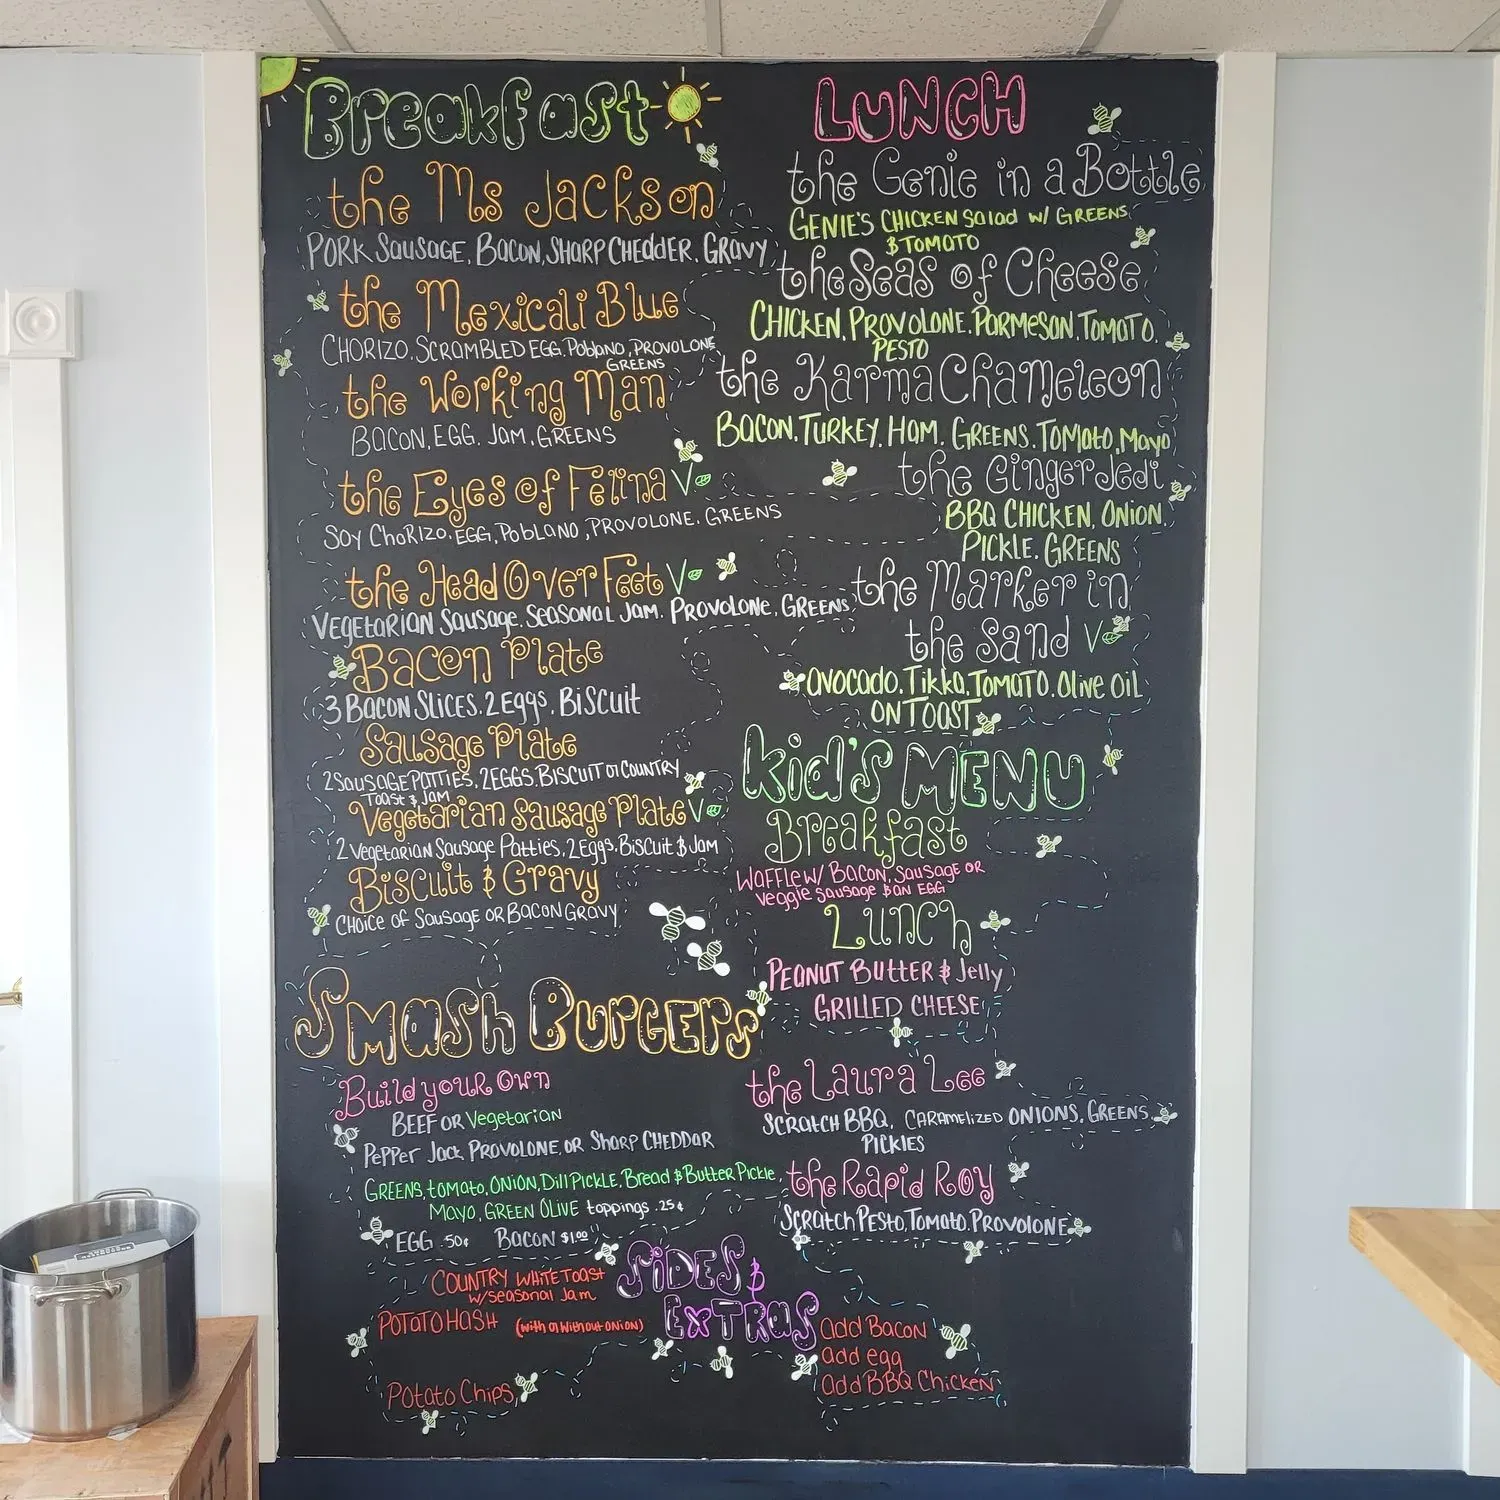 Breakfast
the Ms Jackson
PORK SAUSAGE, BACON, SHARP CHEDDER, GRAVY
the Mexicali Blue
CHORIZO, SCRAMBLED EGG, Poblano, PROVOLONE
GREENS
the Working Man
BACON, EGG, Jam, GREENS
the Eyes of Felina V
SOY CHORIZO, EGG, POBLANO, PROVOLONE, GREENS
the Head Over Feet V
VEGETARIAN SAUSAGE, SEASONAL JAM, PROVOLONE, GREENS
Bacon Plate
3 BACON SLICES, 2 Eggs, BISCUIT
Sausage Plate
2 SAUSAGE PATTIES, 2 EGGS, BISCUIT or COUNTRY
TOAST & JAM
Vegetarian Sausage Plate V
2 Vegetarian Sausage Patties, 2 Eggs, Biscuit & Jam
Biscuit & Gravy
CHOICE OF SAUSAGE OR BACON GRAVY
LUNCH
the Genie in a Bottle
GENIE'S CHICKEN Salad w/ GREENS
& TOMATO
the Seas of Cheese
CHICKEN, PROVOLONE, PARMESAN, TOMATO,
PESTO
the Karma Chameleon
BACON, TURKEY, HAM, GREENS, TOMATO, Mayo
the Ginger Jedi
BBQ CHICKEN, ONION,
PICKLE, GREENS
the Marker in
the Sand V
AVOCADO, Tikka, TOMATO, Olive OiL
ON TOAST
Kid's MENU
Breakfast
WAFFLE W/ BACON, SAUSAGE OR
Veggie Sausage & AN EGG
Lunch
PEANUT BUTTER & Jelly
GRILLED CHEESE
Smash Burgers
Build your Own
BEEF OR Vegetarian
Pepper Jack, PROVOLONE, OR SHARP CHEDDAR
GREENS, tomato, ONION, Dill PICKLE, Bread & Butter Pickle
Mayo, GREEN OLIVE toppings .25¢
EGG .50¢ BACON $1.00
the Laura Lee
SCRATCH BBQ, CARAMELIZED ONIONS, GREENS,
PICKLES
the Rapid Roy
SCRATCH PESTO, TOMATO, PROVOLONE
SIDES &
EXTRAS
COUNTRY WHITE TOAST
w/ SEASONAL Jam
POTATO HASH (with or without ONION)
POTATO CHIPS
add BACON
add egg
add BBQ Chicken